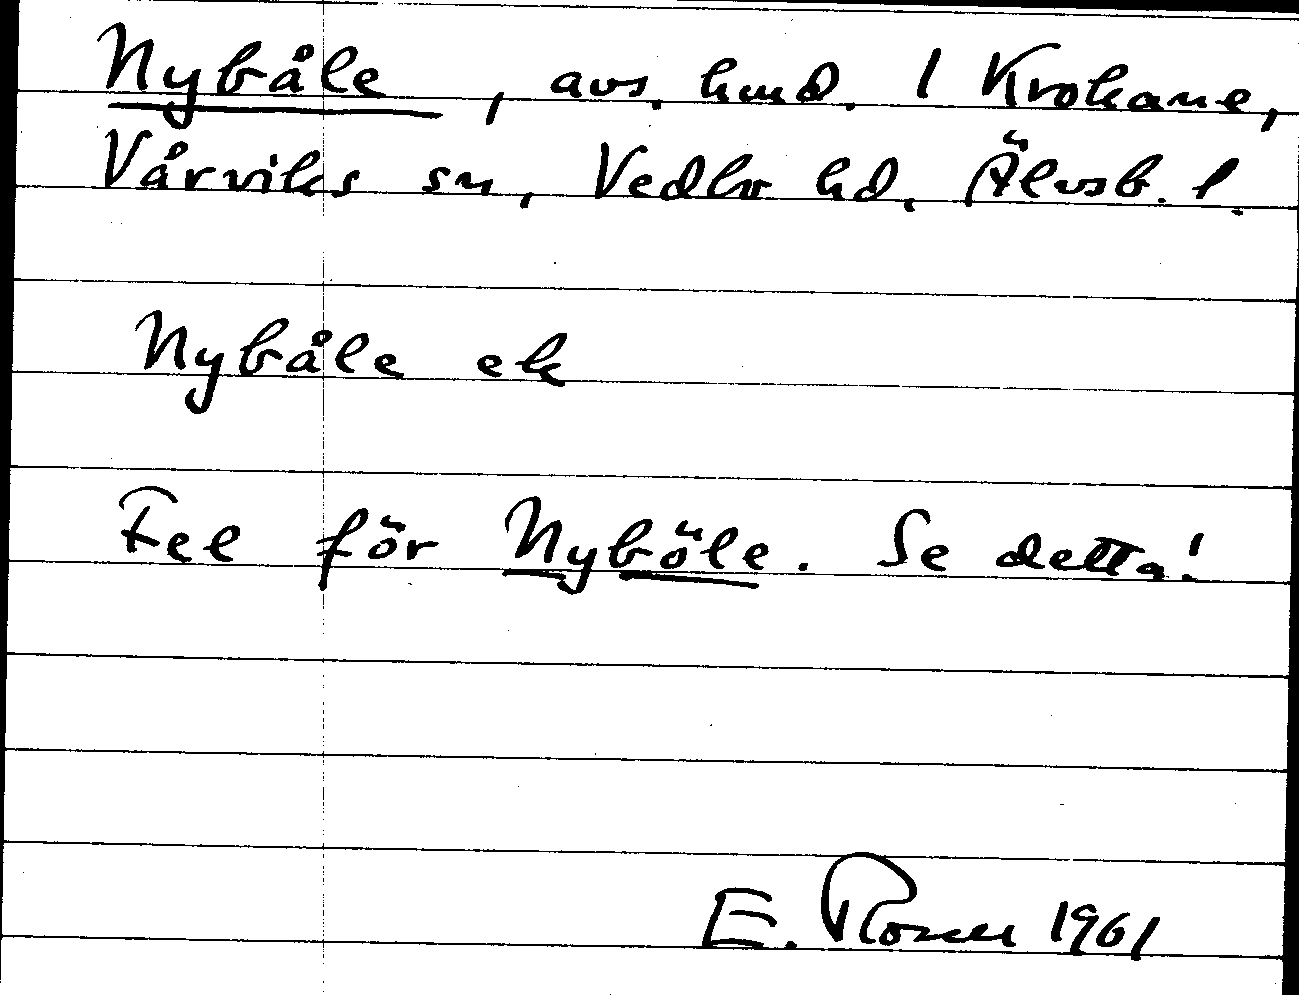 Nybåle, avs. hmd. 1 Krokane,
Vårviks sn, Vedbo hd. Älvsb. l.
Nybåle ek
Fel för Nyböle. Se detta!
E. Rosell 1961